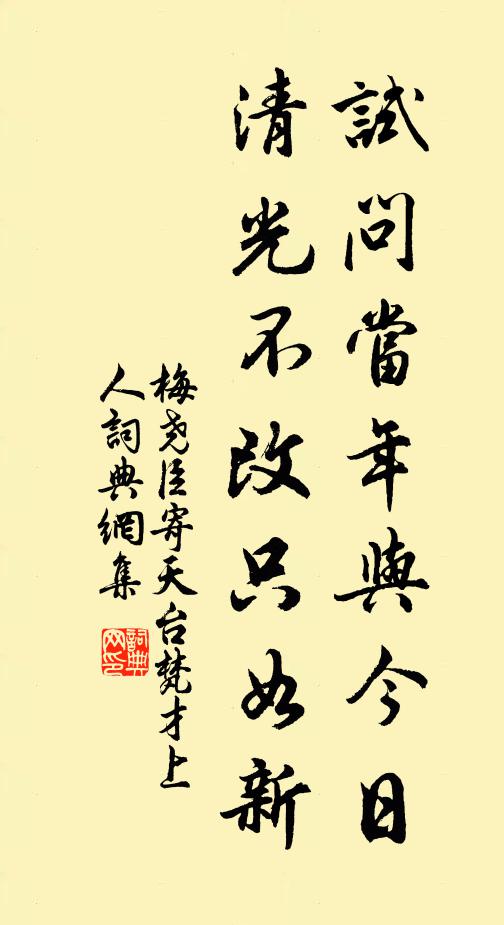 試問當年與今日
清光不改只如新
梅尧臣寄天台梵才上
人詞典網集
詞典
网印